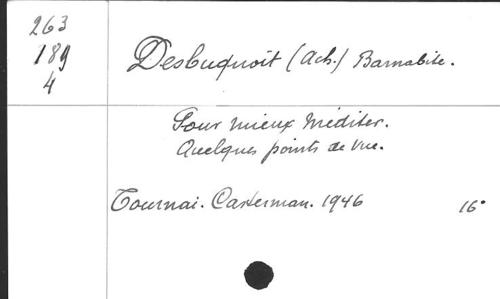 263
189
4
Desbuquoit (Ach.) Barnabite.
Pour mieux méditer.
Quelques points de vue.
Tournai. Casterman. 1946 16°